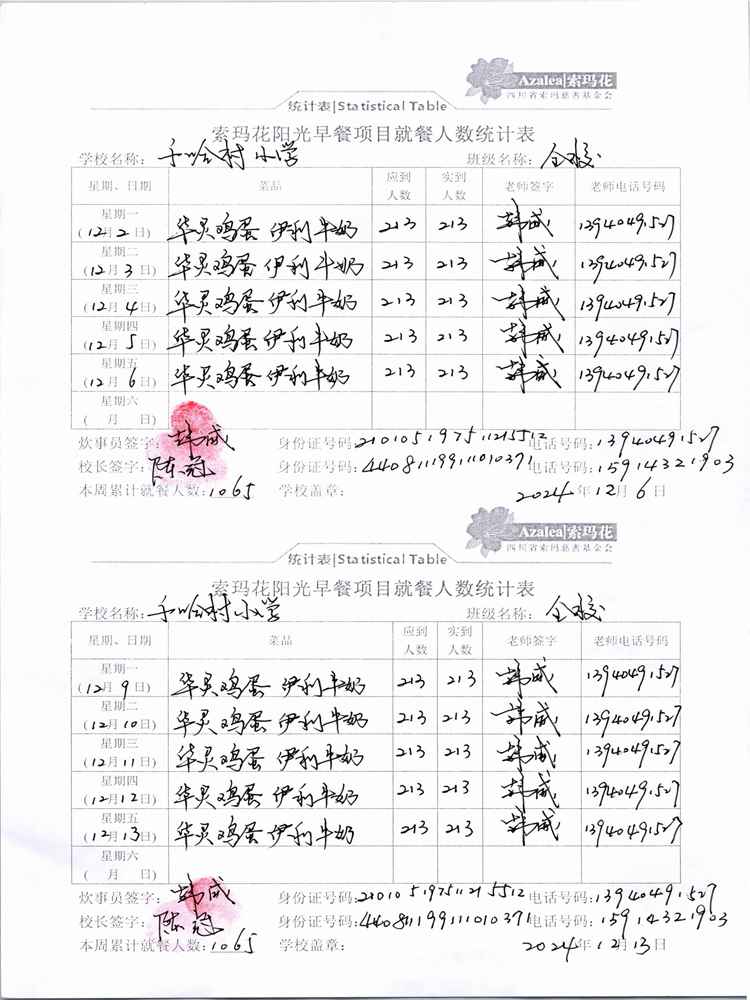 Azalea|索玛花
四川省索玛慈善基金会
统计表|Statistical Table
索玛花阳光早餐项目就餐人数统计表
学校名称: 千哈村小学 班级名称: 全校
星期、日期 菜品 应到人数 实到人数 老师签字 老师电话号码
星期一 (12月2日) 华灵鸡蛋 伊利牛奶 213 213 韩威 13940491527
星期二 (12月3日) 华灵鸡蛋 伊利牛奶 213 213 韩威 13940491527
星期三 (12月4日) 华灵鸡蛋 伊利牛奶 213 213 韩威 13940491527
星期四 (12月5日) 华灵鸡蛋 伊利牛奶 213 213 韩威 13940491527
星期五 (12月6日) 华灵鸡蛋 伊利牛奶 213 213 韩威 13940491527
星期六 ( 月 日)
炊事员签字: 韩威 身份证号码:210105197511215512 电话号码:13940491527
校长签字: 陈冠 身份证号码:440811199111010371 电话号码:15914321903
本周累计就餐人数:1065 学校盖章: 2024年12月6日
Azalea|索玛花
四川省索玛慈善基金会
统计表|Statistical Table
索玛花阳光早餐项目就餐人数统计表
学校名称: 千哈村小学 班级名称: 全校
星期、日期 菜品 应到人数 实到人数 老师签字 老师电话号码
星期一 (12月9日) 华灵鸡蛋 伊利牛奶 213 213 韩威 13940491527
星期二 (12月10日) 华灵鸡蛋 伊利牛奶 213 213 韩威 13940491527
星期三 (12月11日) 华灵鸡蛋 伊利牛奶 213 213 韩威 13940491527
星期四 (12月12日) 华灵鸡蛋 伊利牛奶 213 213 韩威 13940491527
星期五 (12月13日) 华灵鸡蛋 伊利牛奶 213 213 韩威 13940491527
星期六 ( 月 日)
炊事员签字: 韩威 身份证号码:210105197511215512 电话号码:13940491527
校长签字: 陈冠 身份证号码:440811199111010371 电话号码:15914321903
本周累计就餐人数:1065 学校盖章: 2024年12月13日